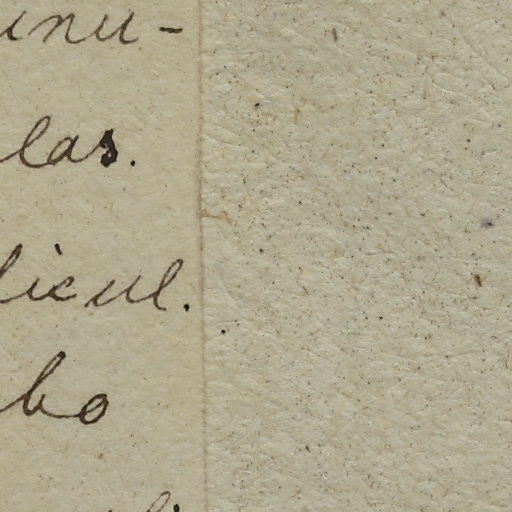 inu-
las.
licul.
bo